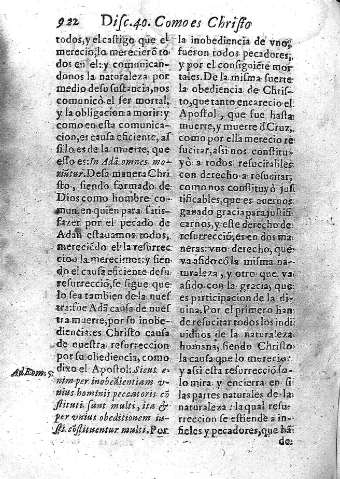 922 Disc. 40. Como es Christo
todos, y el castigo que el
merecio, lo merecierõ to
dos en el: y comunican-
donos la naturaleza por
medio de su sustancia, nos
comunicó el ser mortal,
y la obligacion a morir: y
como en esta comunica-
cion, es causa eficiente, assi
si lo es de la muerte, que
esto es: In Adã omnes mo-
riũtur. Desta manera Chri
sto, siendo formado de
Dios como hombre co-
mun, en quien para satis-
fazer por el pecado de
Adã estauamos todos,
mereciẽdo el la resurrec
cion la merecimos: y sien
do el causa eficiẽte de su
resurrecció, se sigue que
lo sea tambien de la nues
tra: fue Adã causa de nues
tra muerte, por su inobe-
diencia: es Christo causa
de nuestra resurreccion
por su obediencia, como
dixo el Apostol: Sicut e-
Ad Rom. 5.
nim per inobedientiam v-
nius hominis peccatores cõ
stituti sunt multi, ita &
per vnius obeditionem iu-
sti cõstituentur multi. Por
la inobediencia de vno,
fueron todos pecadores,
y por el consiguiẽte mor-
tales. De la misma suerte
la obediencia de Chris-
to, que tanto encarecio el
Apostol, que fue hasta
muerte, y muerte d̃ Cruz,
como por ella merecio re
sucitar, assi nos constitu-
yò a todos resucitables
con derecho a resucitar,
como nos constituyò jus
tificables, que es auernos
ganado gracia para justifi
carnos, y este derecho de
resurrecciõ, es en dos ma
neras: vno derecho, que
va asido cõ la misma na-
turaleza, y otro que va
asido con la gracia, que
es participacion de la di-
uina. Por el primero han
de resucitar todos los indi
uiduos de la naturaleza
humana, siendo Christo
la causa que lo merecio:
y assi esta resurrecciõ so-
lo mira y encierra en si
las partes naturales de la
naturaleza: la qual resu-
rreccion se estiende a in-
fieles y pecadores, que hã
de